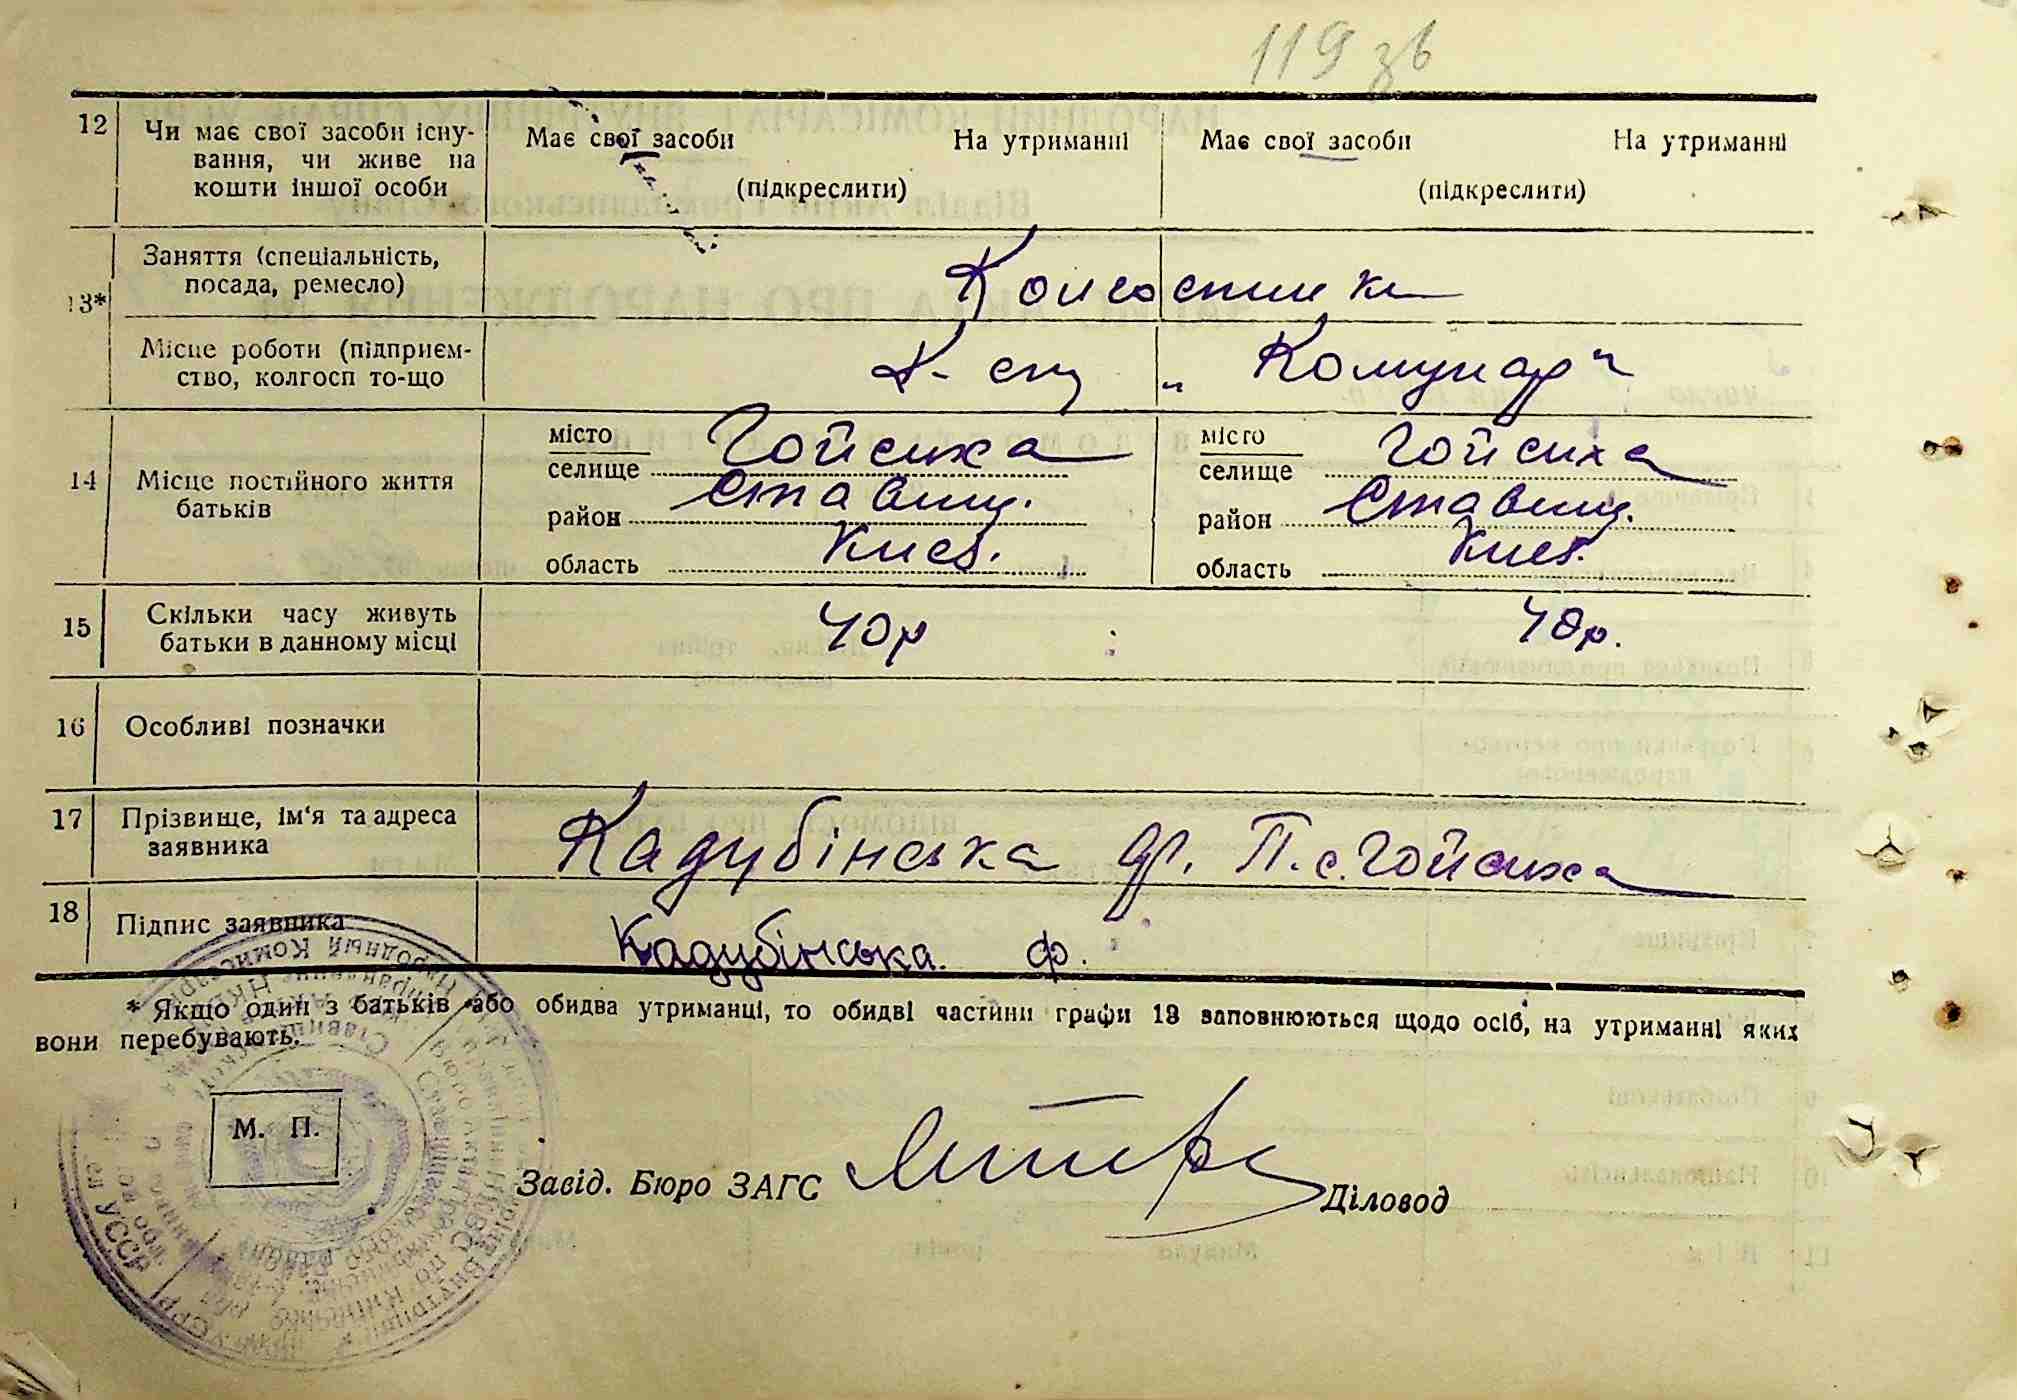 119 зв
12 Чи має свої засоби існу-
вання, чи живе на
кошти іншої особи
Має свої засоби На утриманні
(підкреслити)
Має свої засоби На утриманні
(підкреслити)
13* Заняття (спеціальність,
посада, ремесло)
Колгоспники
Місце роботи (підприєм-
ство, колгосп то-що
К-сп „Комунар“
14 Місце постійного життя
батьків
місто
селище Гойсиха
район Ставищ.
область Києв.
місто
селище Гойсиха
район Ставищ.
область Києв.
15 Скільки часу живуть
батьки в данному місці
40р
40р.
16 Особливі позначки
17 Прізвище, ім'я та адреса
заявника
Кадубінська Ф. П. с. Гойсиха
18 Підпис заявника
Кадубінська. Ф.
* Якщо один з батьків або обидва утриманці, то обидві частини графи 13 заповнюються щодо осіб, на утриманні яких
вони перебувають.
М. П.
Завід. Бюро ЗАГС
Діловод